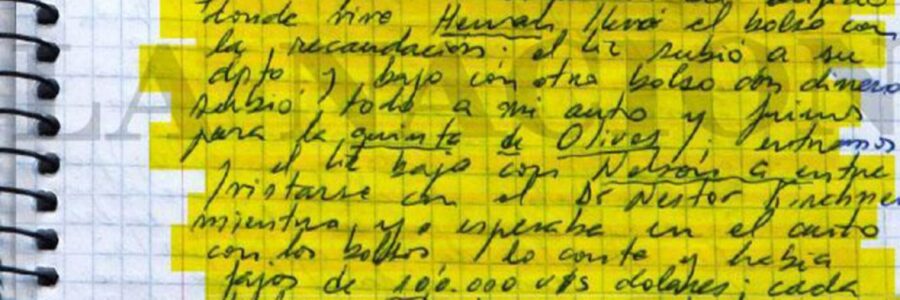 donde vive Hernan, llevó el bolso con
la recaudación; el Lic subió a su
dpto y bajo con otro bolso con dinero
subió todo a mi auto y fuimos
para la quinta de Olivos; entramos
y el Lic bajo con Nelson a entre
/vistarse con el Dr Nestor Kirchner
mientras yo esperaba en el auto
con los bolsos, lo conte y habia
fajos de 100.000 u$s dolares; cada
LA NACION